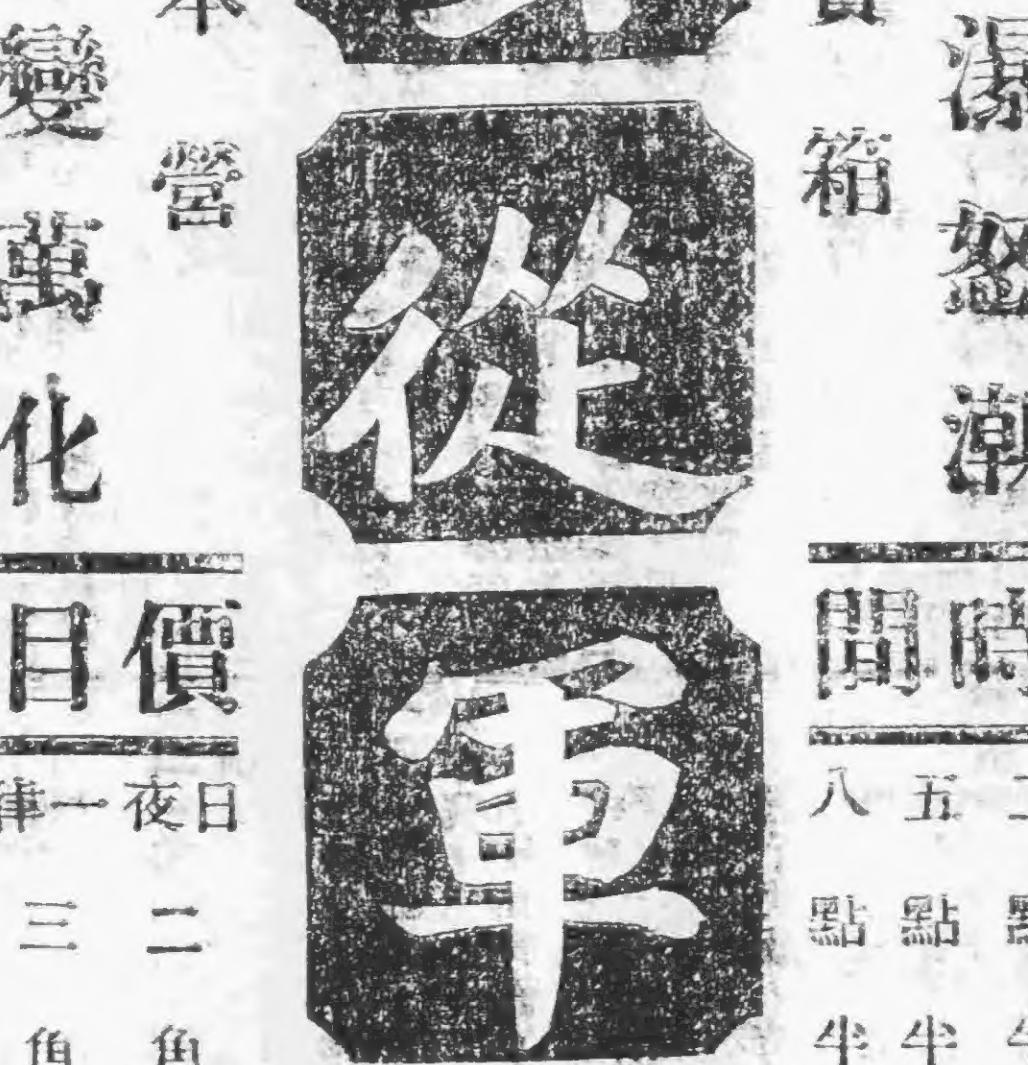 怒潮
箱
時間
點半
五點半
八點半
從軍
本營
變萬化
價目
日夜二角
一律三角